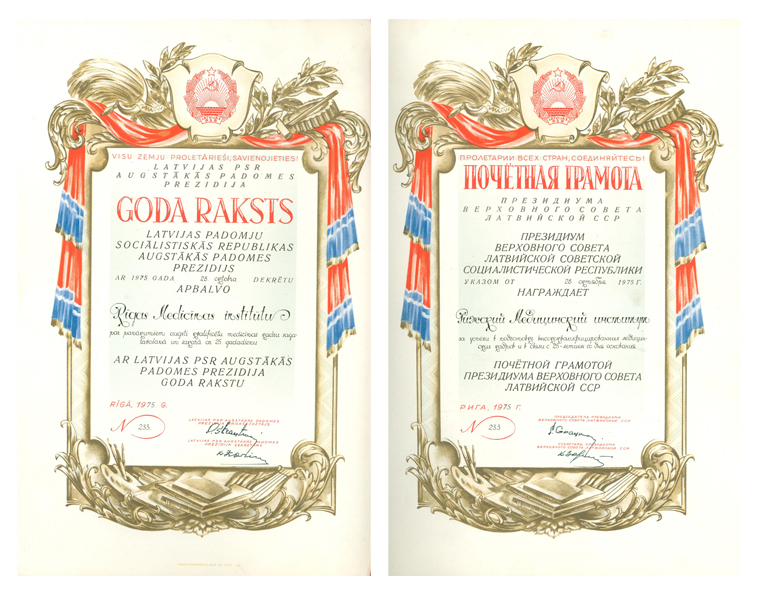 VISU ZEMJU PROLETĀRIEŠI, SAVIENOJIETIES!
LATVIJAS PSR
AUGSTĀKĀS PADOMES
PREZIDIJA
GODA RAKSTS
LATVIJAS PADOMJU
SOCIĀLISTISKĀS REPUBLIKAS
AUGSTĀKĀS PADOMES
PREZIDIJS
AR 1975 GADA 28 oktobra DEKRĒTU
APBALVO
Rīgas Medicīnas institūtu
par panākumiem augsti kvalificētu medicīnas kadru saga-
tavošanā un sakarā ar 25 gadadienu
AR LATVIJAS PSR AUGSTĀKĀS
PADOMES PREZIDIJA
GODA RAKSTU
RĪGĀ, 1975 G.
LATVIJAS PSR AUGSTĀKĀS PADOMES
PREZIDIJA PRIEKŠSĒDĒTĀJS
N 233
LATVIJAS PSR AUGSTĀKĀS PADOMES
PREZIDIJA SEKRETĀRS
ПРОЛЕТАРИИ ВСЕХ СТРАН, СОЕДИНЯЙТЕСЬ!
ПОЧЁТНАЯ ГРАМОТА
ПРЕЗИДИУМА
ВЕРХОВНОГО СОВЕТА
ЛАТВИЙСКОЙ ССР
ПРЕЗИДИУМ
ВЕРХОВНОГО СОВЕТА
ЛАТВИЙСКОЙ СОВЕТСКОЙ
СОЦИАЛИСТИЧЕСКОЙ РЕСПУБЛИКИ
УКАЗОМ ОТ 28 октября 1975 Г.
НАГРАЖДАЕТ
Рижский Медицинский институт
за успехи в подготовке высококвалифицированных медицин-
ских кадров и в связи с 25-летием со дня основания
ПОЧЁТНОЙ ГРАМОТОЙ
ПРЕЗИДИУМА ВЕРХОВНОГО СОВЕТА
ЛАТВИЙСКОЙ ССР
РИГА, 1975 Г.
ПРЕДСЕДАТЕЛЬ ПРЕЗИДИУМА
ВЕРХОВНОГО СОВЕТА ЛАТВИЙСКОЙ ССР
N 233
СЕКРЕТАРЬ ПРЕЗИДИУМА
ВЕРХОВНОГО СОВЕТА ЛАТВИЙСКОЙ ССР